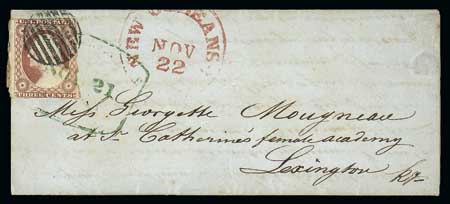 U.S. POSTAGE
THREE CENTS
21
NEW ORLEANS
NOV
22
Miss Georgette Mougneau
at St Catherine's female academy
Lexington Ky